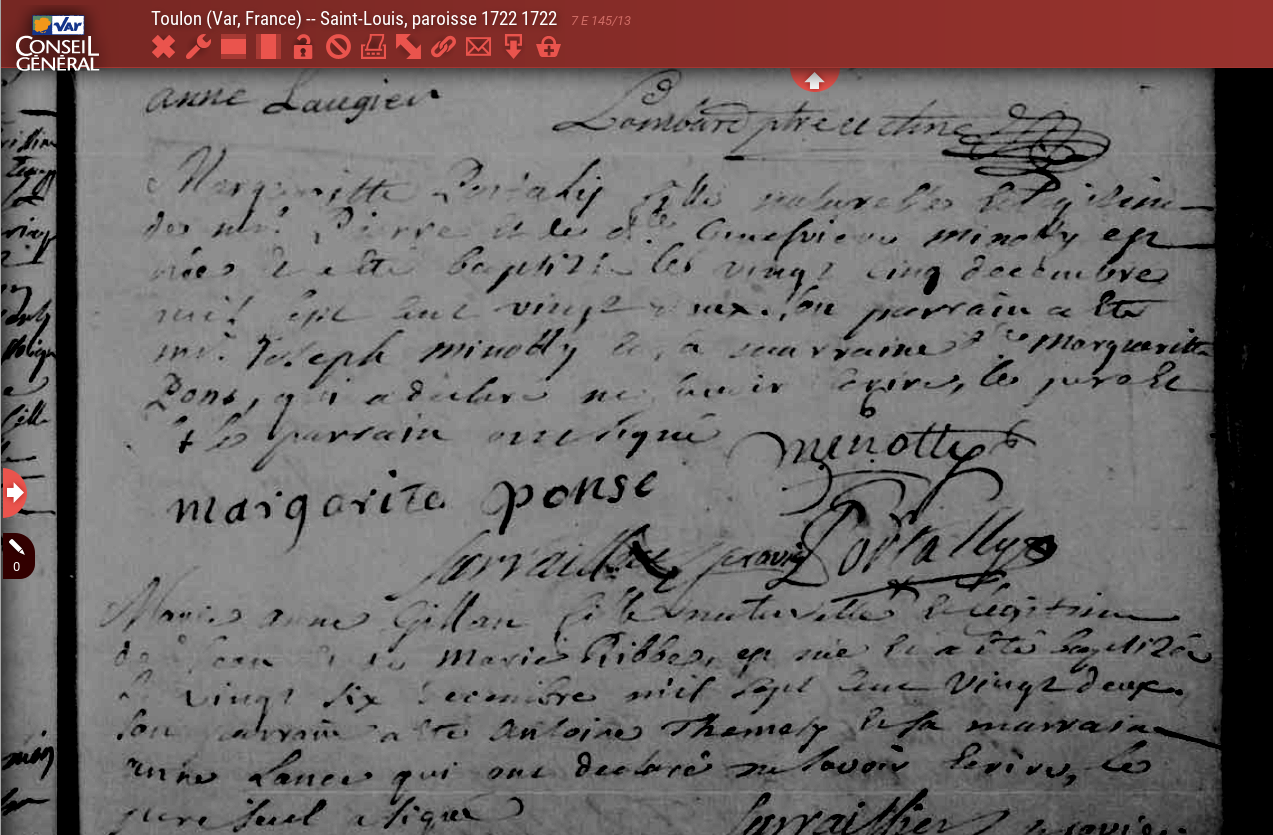 Toulon (Var, France) -- Saint-Louis, paroisse 1722 1722 7 E 145/13
Var
CONSEIL
GÉNÉRAL
anne Laugier
Lombard ptre
Margueritte Portaly fille naturelle et legitime
des mr. Pierre et de dlle Genefvieve minotty est
née et a ete baptizé les vingt cinq decembre
mil sept cent vingt deux. Son parrain a ete
mr. Joseph minotty et sa marraine dlle Margueritte
Pons, qui a declaré ne savoir ecrire, le pere et
et le parrain ont signé
minotty
margarita ponse
Portally
0
Marie anne fille naturelle et legitime
de Jean et de Marie Ribbe, est née et a été baptizée
le vingt six decembre mil sept cent vingt deux
son parrain a ete Antoine et sa marraine
anne qui ont declaré ne savoir ecrire, le
pere seul a signé